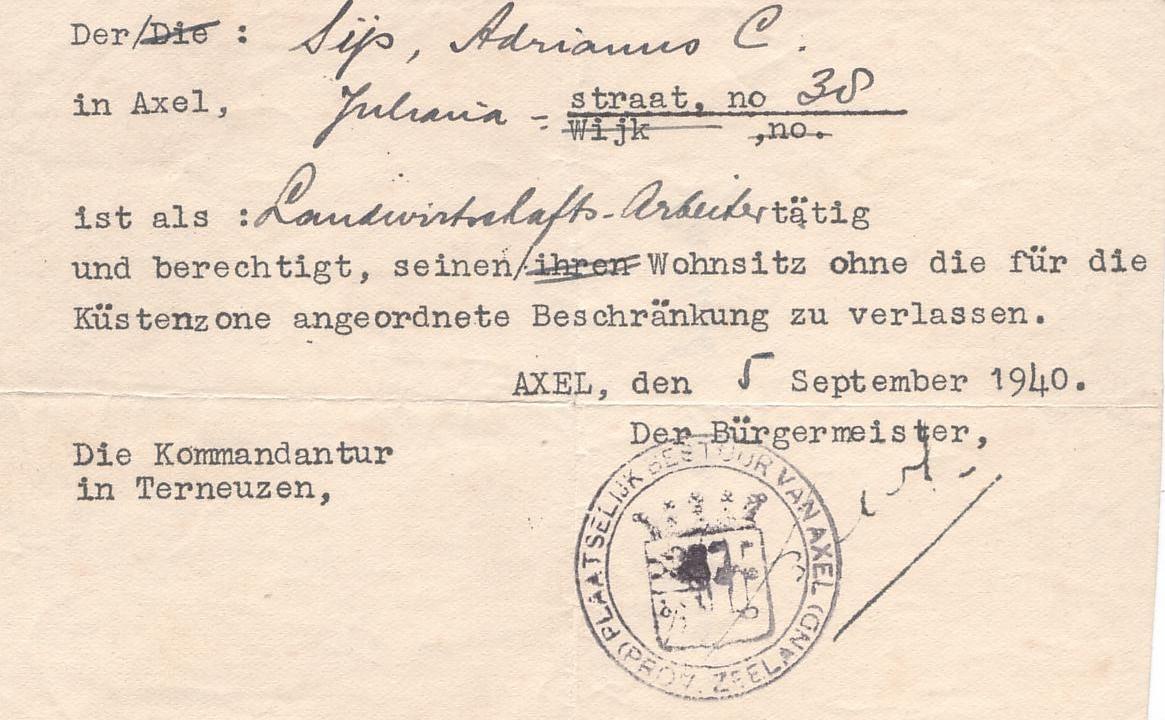 Der/Die : Sijs, Adrianus C.
in Axel, Juliana - straat, no 38
Wijk ,no.
ist als : Landwirtschafts-Arbeiter tätig
und berechtigt, seinen/ihren Wohnsitz ohne die für die
Küstenzone angeordnete Beschränkung zu verlassen.
AXEL, den 5 September 1940.
Der Bürgermeister,
Die Kommandantur
in Terneuzen,
PLAATSELIJK BESTUUR VAN AXEL
(PROV. ZEELAND)